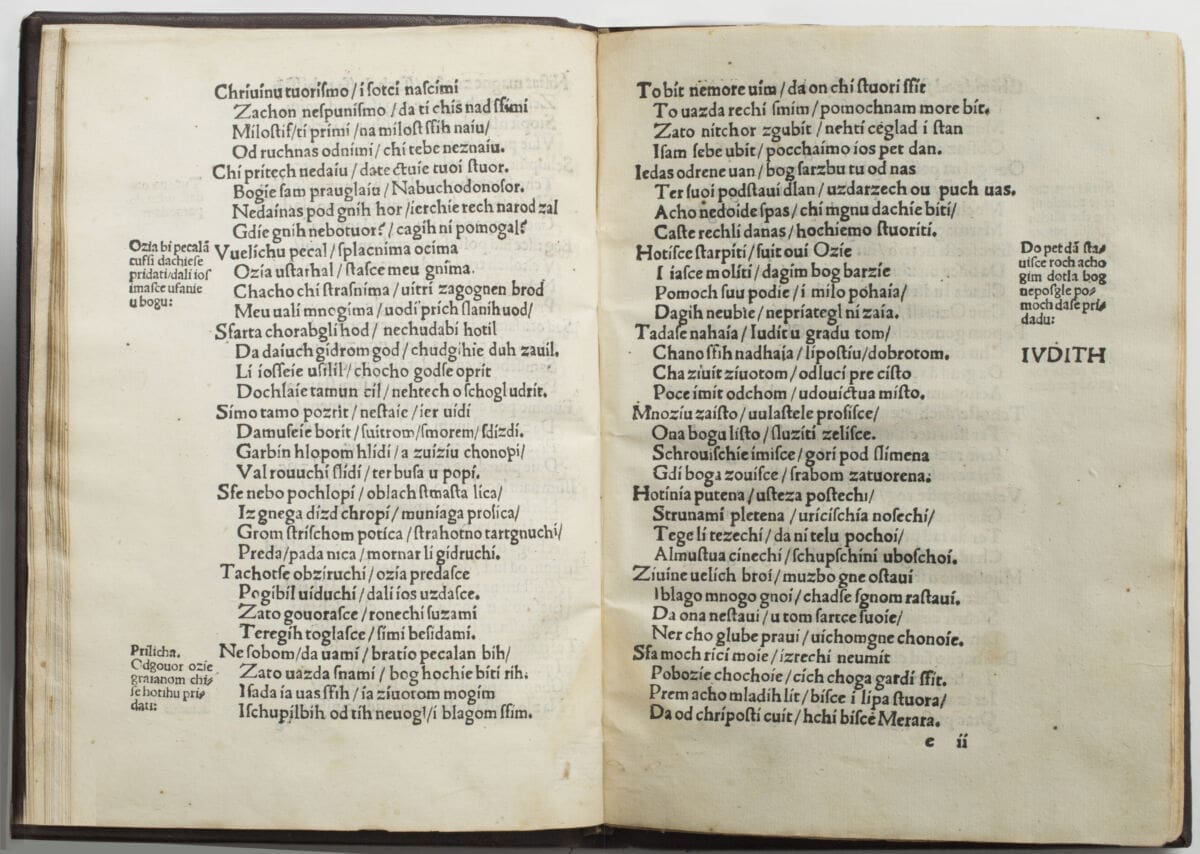 Chriuinu tuorismo / i sotci nascimi
Zachon nespunismo / da ti chis nad ssimi
Milostif / ti primi / na milost ssih naiu /
Od ruchnas odnimi / chi tebe neznaiu.
Chi pritech nedaiu / date ctuie tuoi stuor.
Bogie sam prauglaiu / Nabuchodonosor.
Nedainas pod gnih hor / ierchie rech narod zal
Gdie gnih nebotuor? / cagih ni pomogal?
Ozia bi pecalã
cussi dachiese
pridati / dali ios
imasce ufanie
u bogu:
Vuelichu pecal / splacnima ocima
Ozia ustarhal / stasce meu gnima.
Chacho chi strasnima / uitri zagognen brod
Meu uali mnogima / uodi prich slanih uod /
Sfarta chorabgli hod / nechudabi hotil
Da daiuch gidrom god / chudgihie duh zauil.
Li iosseie usilil / chocho godse oprit
Dochlaie tamun cil / nehtech o schogl udrit.
Simo tamo pozrit / nestaie / ier uidi
Damuseie borit / suitrom / smorem / sdizdi.
Garbin hlopom hlidi / a zuiziu chonopi /
Val rouuchi slidi / ter busa u popi.
Sfe nebo pochlopi / oblach stmasta lica /
Iz gnega dizd chropi / muniaga prosica /
Grom strischom potica / strahotno tartgnuchi /
Preda / pada nica / mornar li gidruchi.
Tachotse obziruchi / ozia predasce
Pogibil uiduchi / dali ios uzdasce.
Zato gouorasce / ronechi suzami
Teregih toglasce / simi besidami.
Prilicha.
Odgouor ozie
graianom chi⸗
se hotihu pri⸗
dati:
Ne sobom / da uami / bratio pecalan bih /
Zato uazda snami / bog hochie biti rih.
I sada ia uas ssih / ia ziuotom mogim
Ischupilbih od tih neuogl / i blagom ssim.
To bit nemore uim / da on chi stuori ssit
To uazda rechi smim / pomochnam more bit.
Zato nitchor zgubit / nehti ceglad i stan
I sam sebe ubit / pocchaimo ios pet dan.
Iedas odrene uan / bog sarzbu tu od nas
Ter suoi podstaui dlan / uzdarzech ou puch uas.
Acho nedoide spas / chi mgnu dachie biti /
Caste rechli danas / hochiemo stuoriti.
Do pet dã sta⸗
uisce roch acho
gim dotla bog
neposgle po⸗
moch dase pri⸗
dadu:
Hotisce starpiti / suit oui Ozie
I iasce moliti / dagim bog barzie
Pomoch suu podie / i milo pohaia /
Dagih neubie / nepriategl ni zaia.
Tadase nahaia / Iudit u gradu tom /
IVDITH
Chano ssih nadhaia / lipostiu / dobrotom.
Cha ziuit ziuotom / odluci pre cisto
Poce imit odchom / udouictua misto.
Mnoziu zaisto / uulastele prosisce /
Ona bogu listo / sluziti zelisce.
Schrouischie imisce / gori pod slimena
Gdi boga zouisce / srabom zatuorena.
Hotinia putena / usteza postechi /
Strunami pletena / uricischia nosechi /
Tege li tezechi / da ni telu pochoi /
Almustua cinechi / schupschini uboschoi.
Ziuine uelich broi / muzbo gne ostaui
I blago mnogo gnoi / chadse sgnom rastaui.
Da ona nestaui / u tom sartce suoie /
Ner cho glube praui / uichomgne chonoie.
Sfa moch rici moie / izrechi neumit
Pobozie chochoie / cich choga gardi ssit.
Prem acho mladih lit / bisce i lipa stuora /
Da od chriposti cuit / hchi bisce Merara.
e ii